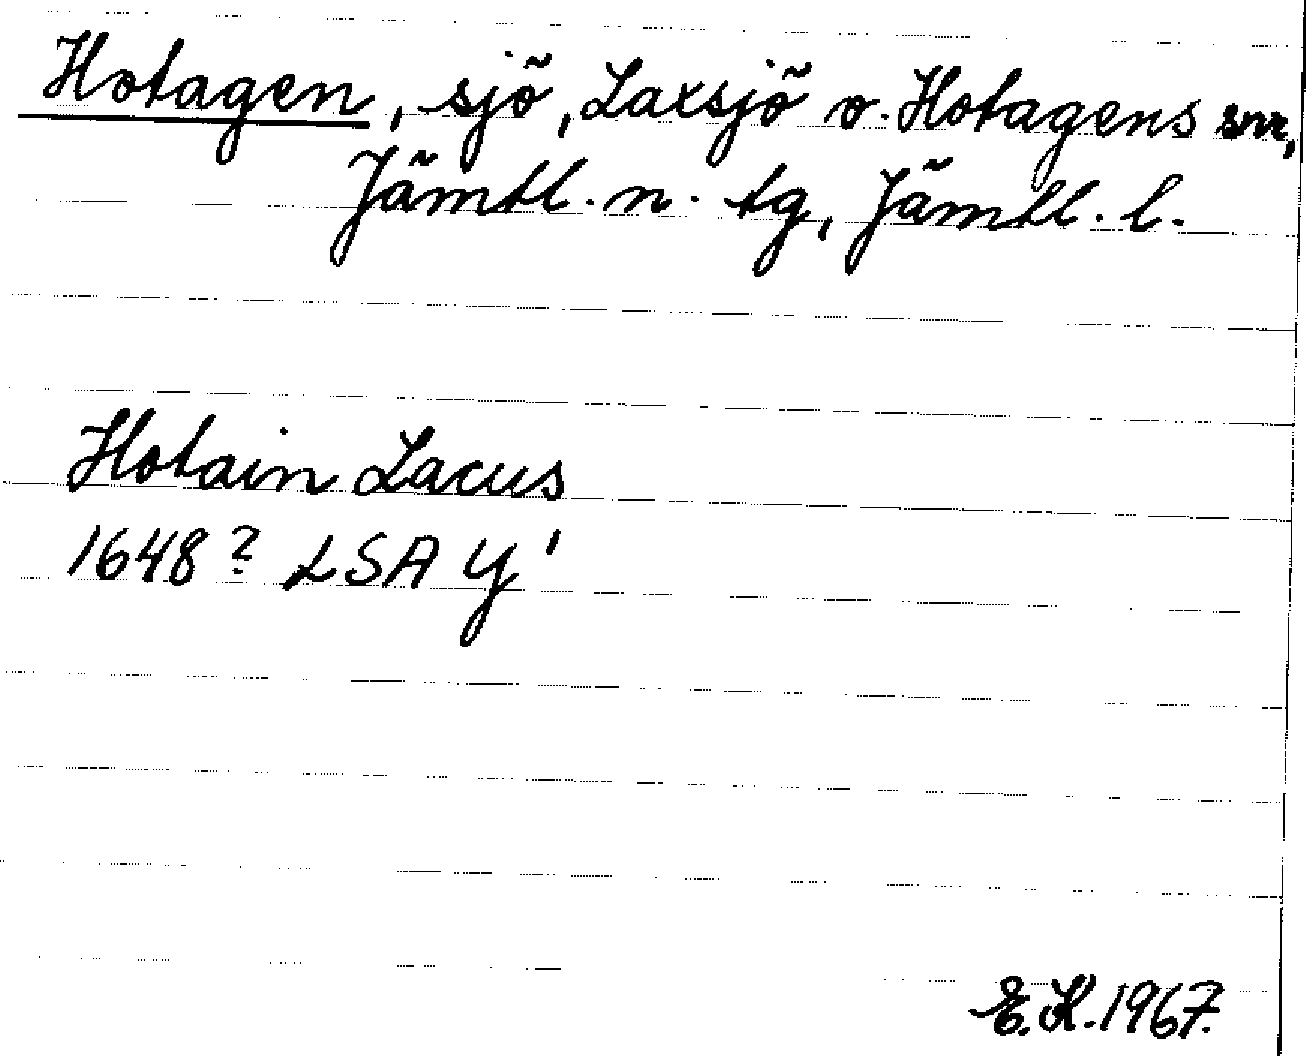 Hotagen, sjö, Laxsjö o. Hotagens snr,
Jämtl. n. tg, Jämtl. l.
Hotain Lacus
1648? LSA Y'
E.K. 1967.